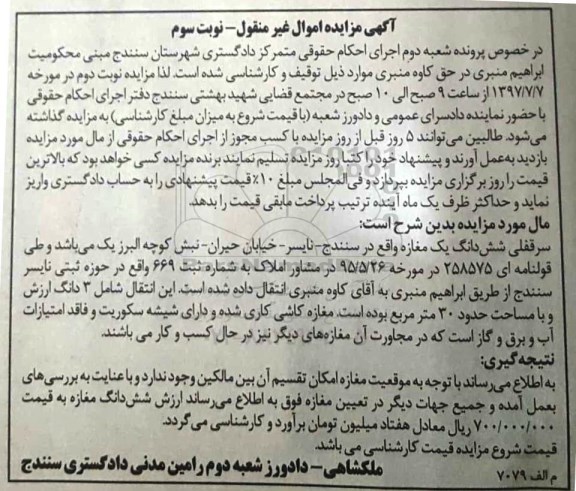 آگهی مزایده اموال غیر منقول - نوبت سوم
در خصوص پرونده شعبه دوم اجرای احکام حقوقی متمرکز دادگستری شهرستان سنندج مبنی محکومیت
ابراهیم منبری در حق کاوه منبری موارد ذیل توقیف و کارشناسی شده است. لذا مزایده نوبت دوم در مورخه
۱۳۹۷/۷/۷ از ساعت ۹ صبح الی ۱۰ صبح در مجتمع قضایی شهید بهشتی سنندج دفتر اجرای احکام حقوقی
با حضور نماینده دادسرای عمومی و دادورز شعبه (با قیمت شروع به میزان مبلغ کارشناسی) به مزایده گذاشته
می‌شود. طالبین می‌توانند ۵ روز قبل از روز مزایده با کسب مجوز از اجرای احکام حقوقی از مال مورد مزایده
بازدید به‌عمل آورند و پیشنهاد خود را کتبا روز مزایده تسلیم نمایند برنده مزایده کسی خواهد بود که بالاترین
قیمت را روز برگزاری مزایده بپردازد و فی‌المجلس مبلغ ۱۰٪ قیمت پیشنهادی را به حساب دادگستری واریز
نماید و حداکثر ظرف یک ماه آینده ترتیب پرداخت مابقی قیمت را بدهد.
مال مورد مزایده بدین شرح است:
سرقفلی شش‌دانگ یک مغازه واقع در سنندج - نایسر - خیابان حیران - نبش کوچه البرز یک می‌باشد و طی
قولنامه ای ۲۵۸۵۷۵ در مورخه ۹۵/۵/۲۶ در مشاور املاک به شماره ثبت ۶۶۹ واقع در حوزه ثبتی نایسر
سنندج از طریق ابراهیم منبری به آقای کاوه منبری انتقال داده شده است. این انتقال شامل ۳ دانگ ارزش
و با مساحت حدود ۳۰ متر مربع بوده است. مغازه کاشی کاری شده و دارای شیشه سکوریت و فاقد امتیازات
آب و برق و گاز است که در مجاورت آن مغازه‌های دیگر نیز در حال کسب و کار می باشند.
نتیجه‌گیری:
به اطلاع می‌رساند با توجه به موقعیت مغازه امکان تقسیم آن بین مالکین وجود ندارد و با عنایت به بررسی‌های
بعمل آمده و جمیع جهات دیگر در تعیین مغازه فوق به اطلاع می‌رساند ارزش شش‌دانگ مغازه به قیمت
۷۰۰/۰۰۰/۰۰۰ ریال معادل هفتاد میلیون تومان برآورد و کارشناسی می‌گردد.
قیمت شروع مزایده قیمت کارشناسی می باشد.
ملکشاهی - دادورز شعبه دوم رامین مدنی دادگستری سنندج
م الف ۷۰۷۹